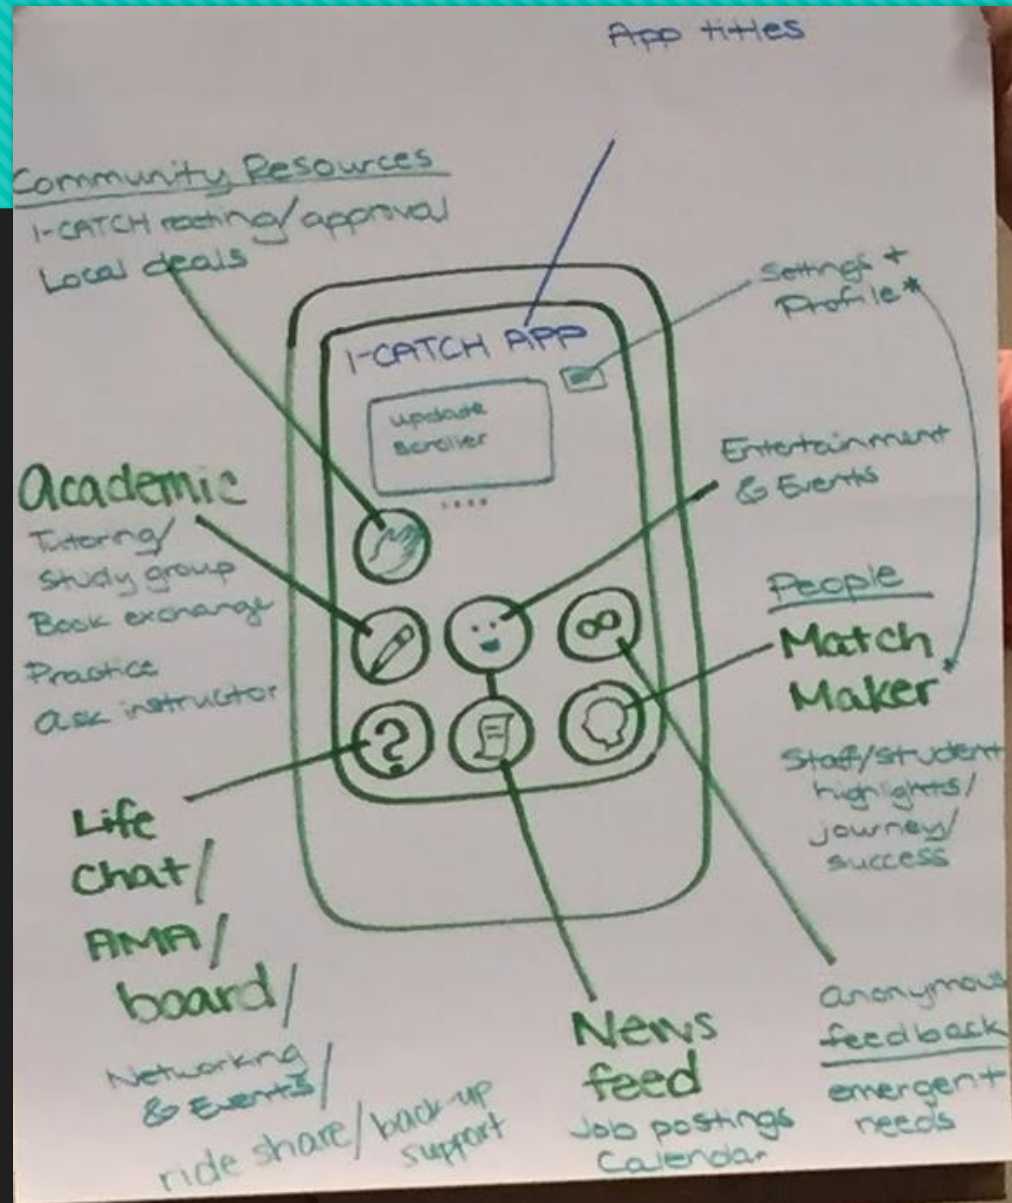 App titles
Community Resources
I-CATCH rating/approval
Local deals
Settings +
Profile*
I-CATCH APP
update
scroller
Entertainment
& Events
Academic
Tutoring/
Study group
Book exchange
Practice
ask instructor
People
Match
Maker*
Staff/student
highlights/
journey/
success
?
Life
Chat/
AMA/
board/
Networking
& Events/
ride share/back-up
support
News
feed
Job postings
Calendar
anonymous
feedback
emergent
needs